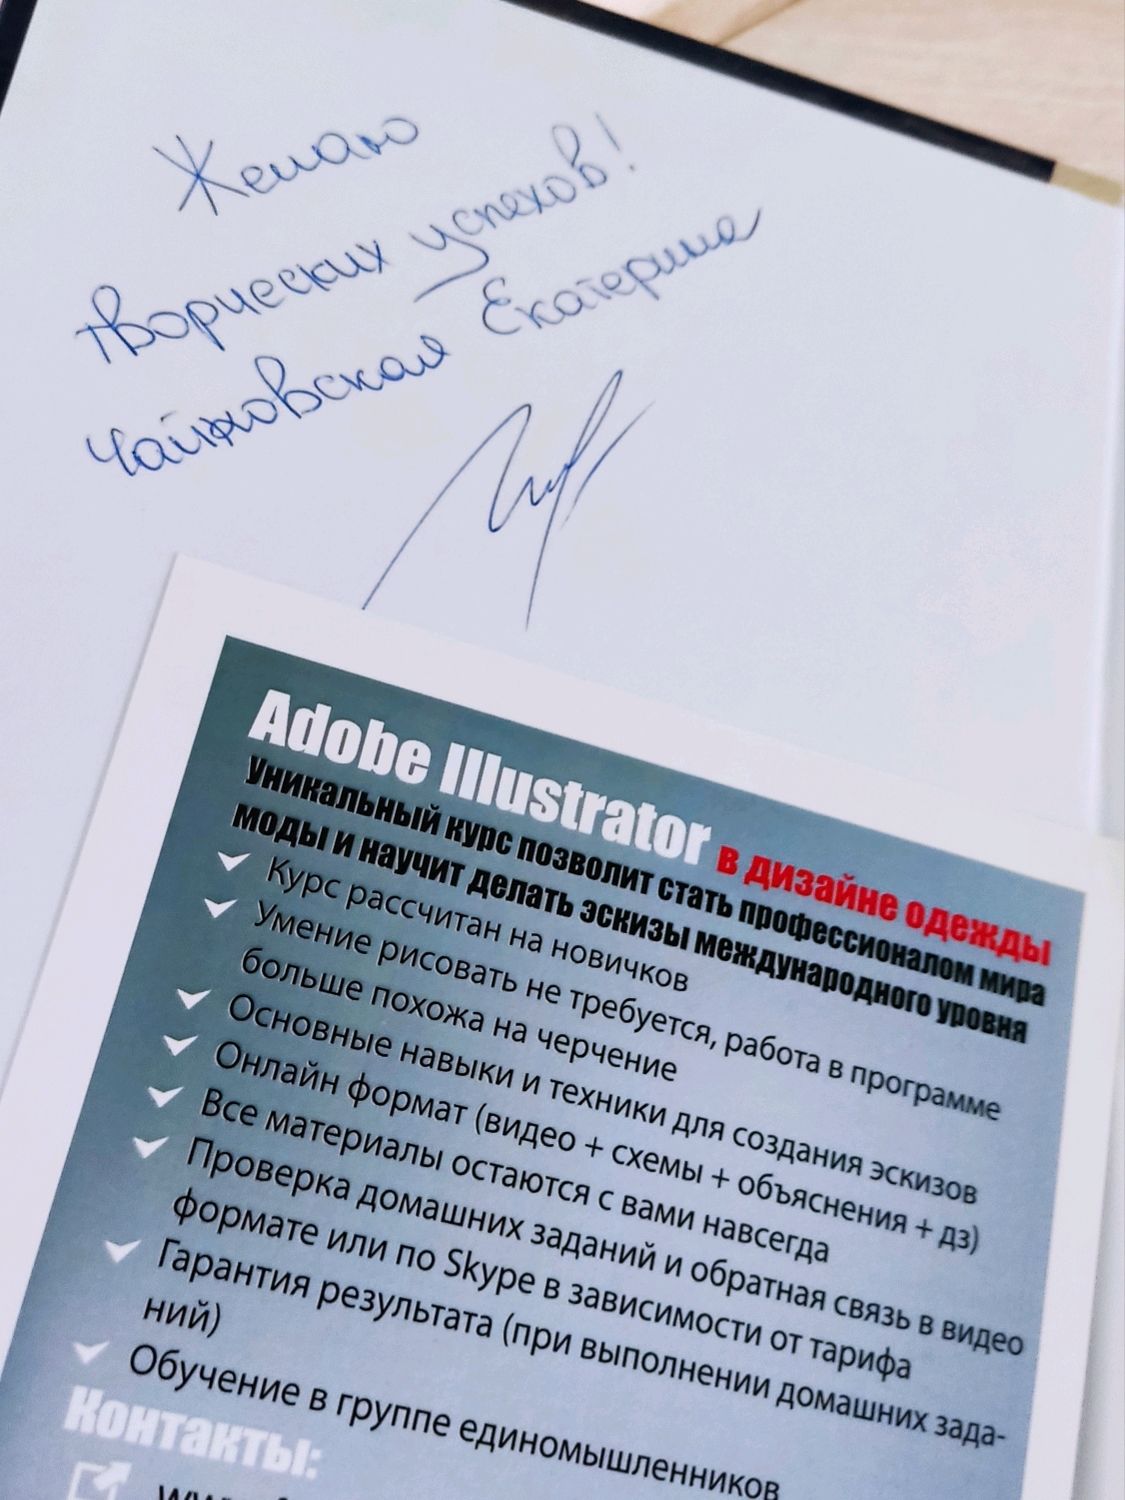 Желаю
творческих успехов!
Чайковская Екатерина
Adobe Illustrator в дизайне одежды
Уникальный курс позволит стать профессионалом мира
моды и научит делать эскизы международного уровня
Курс рассчитан на новичков
Умение рисовать не требуется, работа в программе
больше похожа на черчение
Основные навыки и техники для создания эскизов
Онлайн формат (видео + схемы + объяснения + дз)
Все материалы остаются с вами навсегда
Проверка домашних заданий и обратная связь в видео
формате или по Skype в зависимости от тарифа
Гарантия результата (при выполнении домашних зада-
ний)
Обучение в группе единомышленников
Контакты: